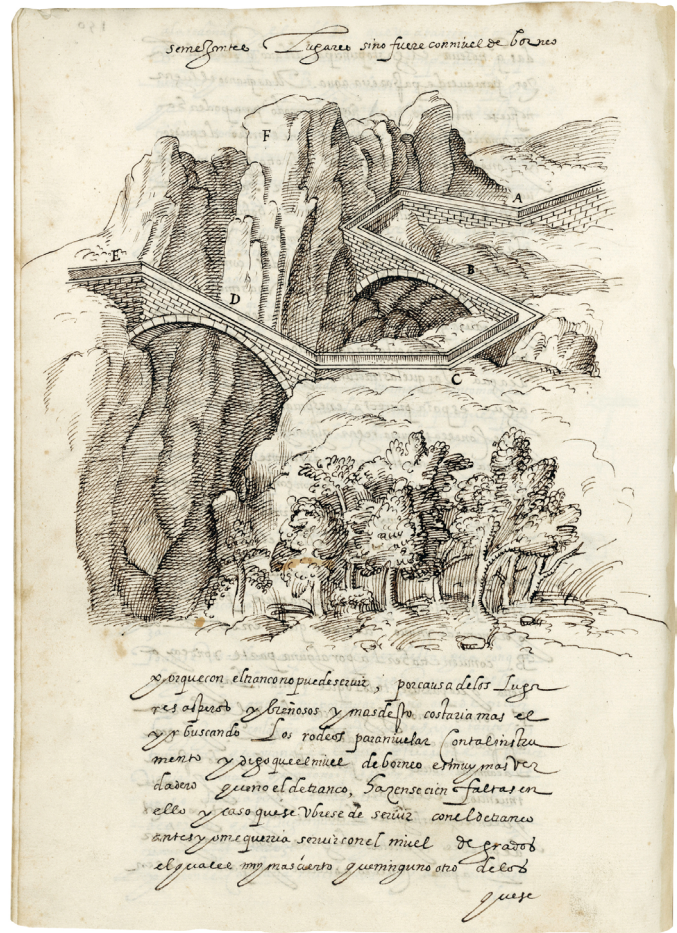 semejantes Lugares sino fuere con nivel de borneo
F
A
E
B
D
C
y porque con el tranco no puede servir, por causa de los Luga
res asperos y breñosos y mas desto costaria mas el
yr buscando Los rodeos para nivelar Con tal instru
mento y digo que el nivel de borneo es muy mas ver
dadero que no el de tranco, hazense cien faltas en
ello y caso que se Vbiese de servir con el de tranco
antes yo me querria servir con el nivel de grados
el qual es muy mas cierto que ninguno otro de los
que se